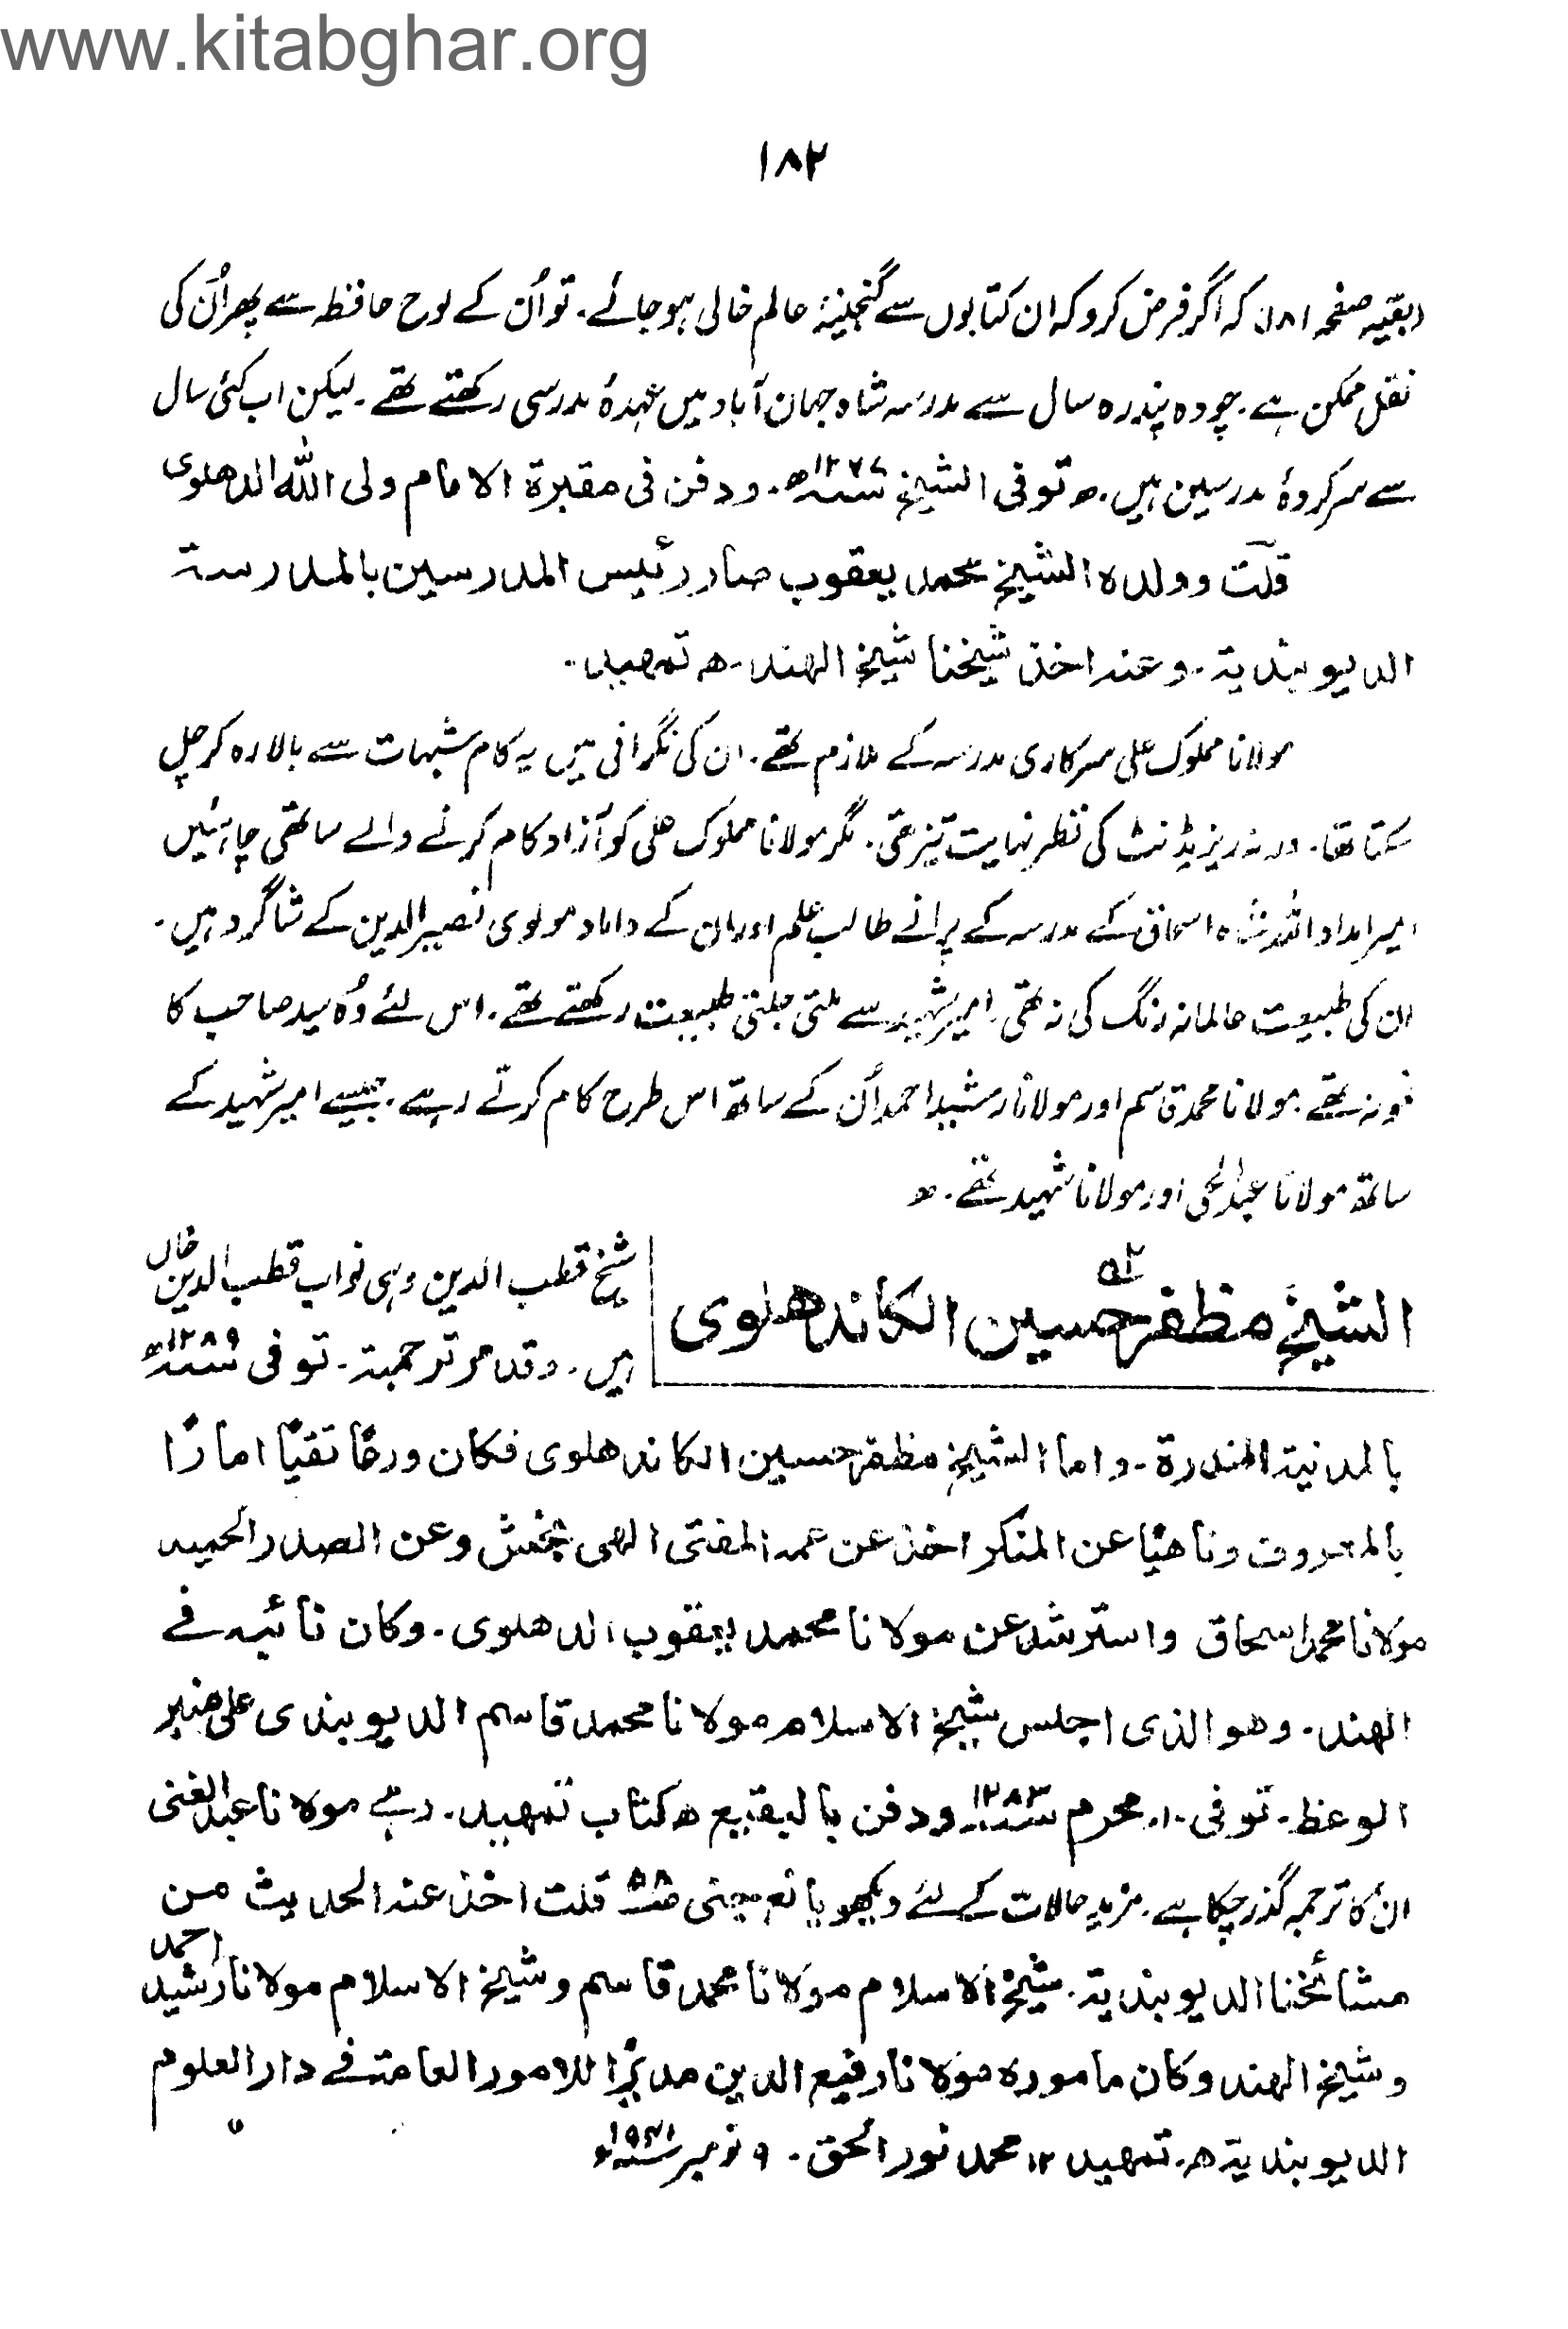 www.kitabghar.org
۱۸۲
(بقیہ صفحہ ۱۸۱) کہ اگر فرض کرو کہ ان کتابوں سے گنجینۂ عالم خالی ہو جائے۔ تو اُن کے لوح حافظہ سے پھر اُن کی
نقل ممکن ہے۔ چودہ پندرہ سال سے مدرسہ شاہ جہان آباد میں عہدۂ مدرسی رکھتے تھے۔ لیکن اب کئی سال
سے سرکردۂ مدرسین ہیں۔ ھ توفی الشیخ سنہ ۱۲۶۷ھ۔ ودفن فی مقبرۃ الامام ولی اللہ الدھلوی
قلت وولدہ الشیخ محمد یعقوب صار رئیس المدرسین بالمدرسۃ
الدیوبندیۃ۔ وعنہ اخذ شیخنا شیخ الھند۔ ھ تمھید۔
مولانا مملوک علی سرکاری مدرسہ کے ملازم تھے۔ ان کی نگرانی میں یہ کام شبہات سے بالا رہ کر چل
سکتا تھا۔ ورنہ ریزیڈنٹ کی نظر نہایت تیز تھی۔ مگر مولانا مملوک علی کو آزاد کام کرنے والے ساتھی چاہئیں
امیر امداد اللہ شاہ اسحاق کے مدرسہ کے پرانے طالب علم اور ان کے داماد مولوی نصیر الدین کے شاگرد ہیں۔
ان کی طبیعت عالمانہ رنگ کی نہ تھی۔ امیر شہید سے ملتی جلتی طبیعت رکھتے تھے۔ اس لئے وُہ سید صاحب کا
نمونہ تھے۔ مولانا محمد قاسم اور مولانا رشید احمد اُن کے ساتھ اس طرح کام کرتے رہے۔ جیسے امیر شہید کے
ساتھ مولانا عبدالحی اور مولانا شہید تھے۔ ھ
۵۲ الشیخ مظفر حسین الکاندھلوی
شیخ قطب الدین وہی نواب قطب الدین خاں
ہیں۔ وقد مر ترجمتہ۔ توفی سنہ ۱۲۸۹ھ
بالمدینۃ المنورۃ۔ واما الشیخ مظفر حسین الکاندھلوی فکان ورعًا تقیًا امارًا
بالمعروف وناھیًا عن المنکر اخذ عن عمہ المفتی الھی بخش وعن الصدر الحمید
مولانا محمد اسحاق واسترشد عن مولانا محمد یعقوب الدھلوی۔ وکان نائبہ فے
الھند۔ وھو الذی اجلس شیخ الاسلام مولانا محمد قاسم الدیوبندی علی منبر
الوعظ۔ توفی ۱۰۔ محرم سنہ ۱۲۸۳ ودفن بالبقیع ھ کتاب تمھید۔ رہے مولانا عبدالغنی
ان کا ترجمہ گذر چکا ہے۔ مزید حالات کے لئے دیکھو یانع جنی قلت اخذ عنہ الحدیث من
مشائخنا الدیوبندیۃ۔ شیخ الاسلام مولانا محمد قاسم وشیخ الاسلام مولانا رشید احمد
وشیخ الھند وکان مامورہ مولانا رفیع الدین مدیرًا للامور العامۃ فے دار العلوم
الدیوبندیۃ ھ۔ تمھید ۱۲ محمد نور الحق۔ ۹ نومبر سنہ ۱۹۴۱ء